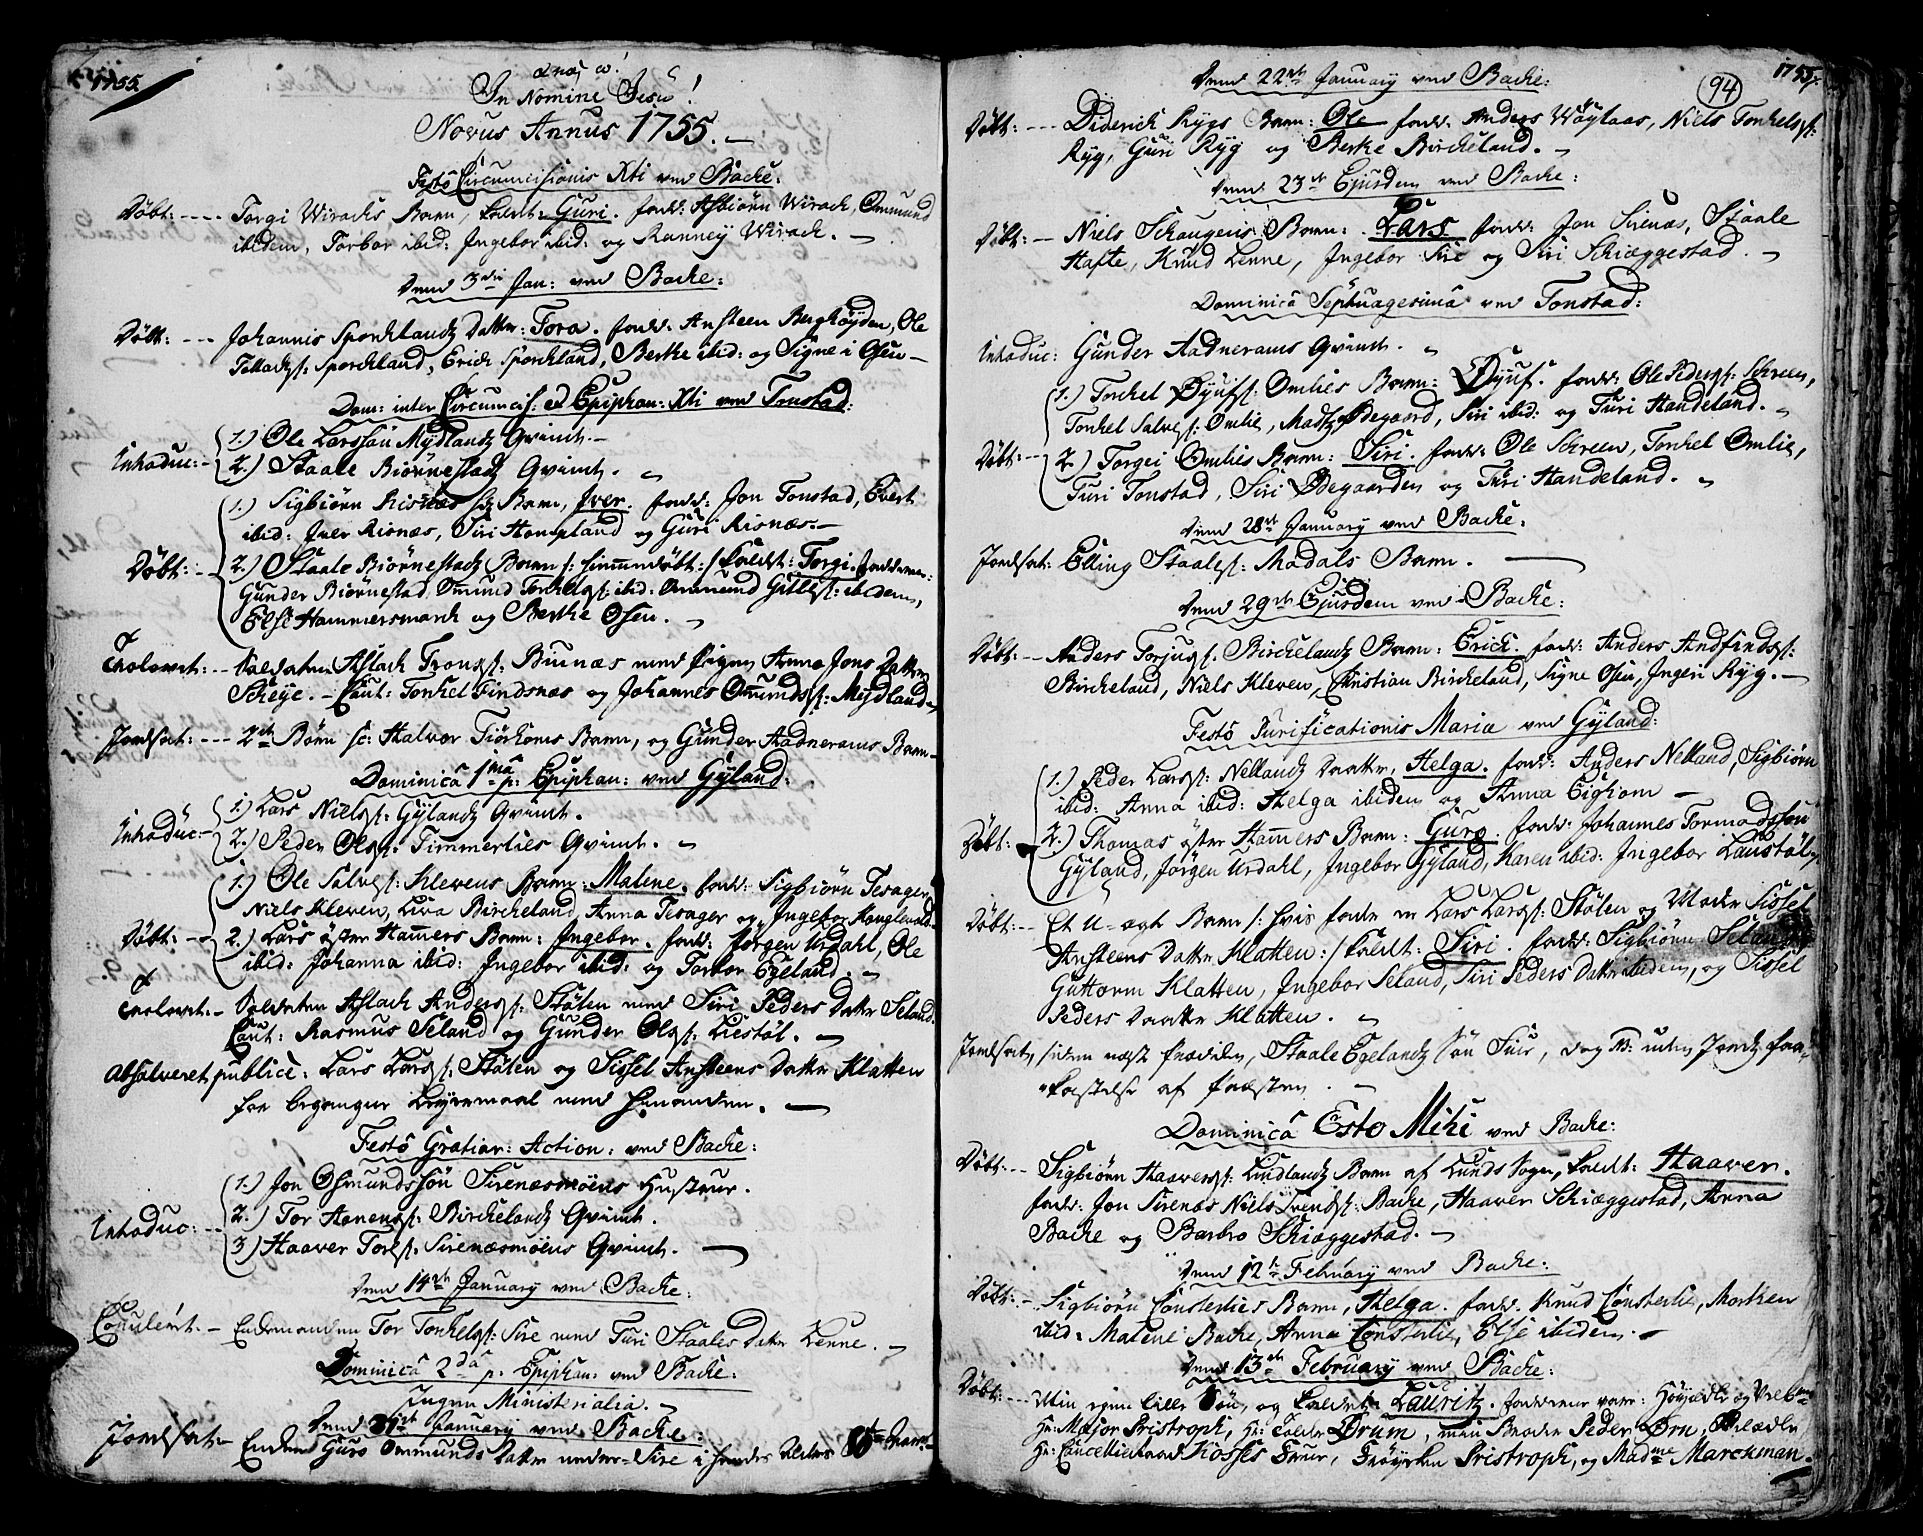 1755.
In Nomine Jesu!
Novus Annus 1755.
Festo Circumcisionis Xti ved Backe.
Døbt: Torgi Wirachs Barn, kaldet: Guri. fadd: Asbiörn Wirach, Ommund
ibidem, Torbor ibid: Ingebor ibid: og Ranney Wirach.
Dend 3die Jan: ved Backe:
Døbt: Johannis Sporcklands Datter: Tora. fadd: Ansteen Berghöyden, Ole
Tollachs: Sporckland, Erich Sporckland, Berthe ibid: og Signe i Osen
Dom: inter Circumcis: et Epiphan: Xti ved Tonstad:
Introduc: 1.) Ole Larssøn Mydlands Qvinde.
2.) Staale Biörnestads Qvinde.
1.) Sigbiörn Risnæs Barn, Iver. fadd: Jon Tonstad, Evert
ibid: Iver Risnæs, Siri Hompland og Guri Risnæs.
Døbt: 2.) Staale Biörnestads Barn /: hiemmedøbt :/ kaldet: Torgi. fadderne:
Gunder Biörnestad, Omund Tonkels: ibid: Ommund Gitles: ibidem,
Else Hammersmarck og Berthe Osen.
Trolovet: Soldaten Aslach Tronds: Biunæs med Pigen Anna Jons Datter
Scheye. Caut: Tonkel Findsnæs og Johannes Omunds: Mydland
Jordfæst: 2de Børn sc: Halvor Tiörhoms Barn, og Gunder Aadnerams Barn
Dominica 1ma p: Epiphan: ved Gyland:
Introduc: 1.) Lars Niels: Gylands Qvinde.
2.) Peder Ols: Timmerlies Qvinde.
1.) Ole Salves: Klevens Barn: Malene. fadd: Sigbiörn Tesager,
Niels Kleven, Liva Bircheland, Anna Tesager og Ingebor
Døbt: 2.) Lars öster Hamers Barn: Ingebor. fadd: Jørgen Urdahl, Ole
ibid: Johanna ibid: Ingebor ibid: og Torbor Egeland.
Trolovet: Soldaten Aslach Anders: Stölen med Siri Peders Datter Seland
Caut: Rasmus Seland og Gunder Ols: Liestöl.
Absolveret publice: Lars Lars: Stölen og Sissel Ansteens Datter Klatten
for begangne Leyermaal med hinanden.
Festo Gratiar: Action: ved Backe:
1.) Jon Osmundssøn Sirenæsmöens Hustrue.
Introduc: 2.) Tor Aanens: Birchelands Qvinde.
3) Haaver Tors: Sirenæsmöens Qvinde.
Dend 14de January ved Backe:
Copuleret: Enkemanden Tor Tonkels: Sire med Turi Staales Datter Lenne.
Dominica 2da p. Epiphan: ved Backe:
Ingen Ministerialia.
Dend 21de January ved Backe:
Jordfæst: Enken Guro Ommunds Datter Sire i hendes Alders
94
1755.
Dend 22de January ved Backe:
Døbt: Diderich Rygs Barn: Ole fadd: Anders Wöylaas, Niels Tonkels:
Ryg, Guri Ryg og Berthe Bircheland.
Dend 23de Ejusdem ved Backe:
Døbt: Niels Schougens Barn: Lars fadd: Jon Sirnæs, Staale
Hafte, Knud Lenne, Ingebor Sire og Siri Schiæggestad.
Dominica Septuagesima ved Tonstad:
Introduc: Gunder Aadnerams Qvinde.
1.) Torkel Øyufs: Omlies Barn: Øyuf. fadd: Ole Peders: Schreen,
Tonkel Salves: Omlie, Mads Ødegaard, Siri ibid: og Turi Handeland.
Døbt: 2.) Torgei Omlies Barn: Siri. fadd: Ole Schreen, Tonkel Omlie,
Turi Tonstad, Siri Ødegaarden og Turi Handeland.
Dend 28de January ved Backe:
Jordfæst: Elling Staales: Modals Barn.
Dend 29de Ejusdem ved Backe:
Døbt: Anders Torjus: Birchelands Barn: Erich. fadd: Anders Andfinds:
Bircheland, Niels Kleven, Christian Bircheland, Signe Osen, Ingeri Ryg.
Festo Purificationis Maria ved Gyland:
1.) Peder Lars: Nellands Daatter, Helga. fadd: Anders Nelland, Sigbiörn
ibid: Anna ibid: Helga ibidem og Anna Eighom
Døbt: 2.) Thomas öster Hamers Barn: Guro. fadd: Johannes Tormodssøn
Gyland, Jörgen Urdahl, Ingebor Gyland, Karen ibid: Ingebor Laustöl,
Døbt: Et U-ægte Barn /: hvis fader er Lars Lars: Stölen og Moder Sissel
Ansteens Datter Klatten :/ kaldet: Siri. fadd: Sigbiörn Seland
Guttorm Klatten, Ingebor Seland, Siri Peders Datter ibidem, og Sissel
Peders Daatter Klatten.
Jordfæstes siden næst fredden, Staale Egelands Søn Siur, dog NB: uden Jords paa-
kastelse af Præsten.
Dominica Esto Mihi ved Backe:
Døbt: Sigbiörn Haavers: Lindlands Barn af Lunds Sogn, kaldet: Haaver.
fadd: Jon Sirenæs, Niels Svends: Backe, Haaver Schiæggestad, Anna
Backe og Barbro Schiæggestad.
Dend 12te February ved Backe:
Døbt: Sigbiörn Consterlies Barn, Helga. fadd: Knud Consterlie, Morthen
ibid: Malene Backe, Anna Consterlie, Else ibidem.
Dend 13de February ved Backe:
Døbt: Min egen lille Søn, og kaldet: Lauritz. fadderne vare: Høyædle og Velb:ne
Hr: Major Pristroph, Hr: Drum, min Broder Peder Ørn, Velædle
Hr: Cancellieraad Kosses Frue, Frøyken Pristroph, og Mad:me Marckman.